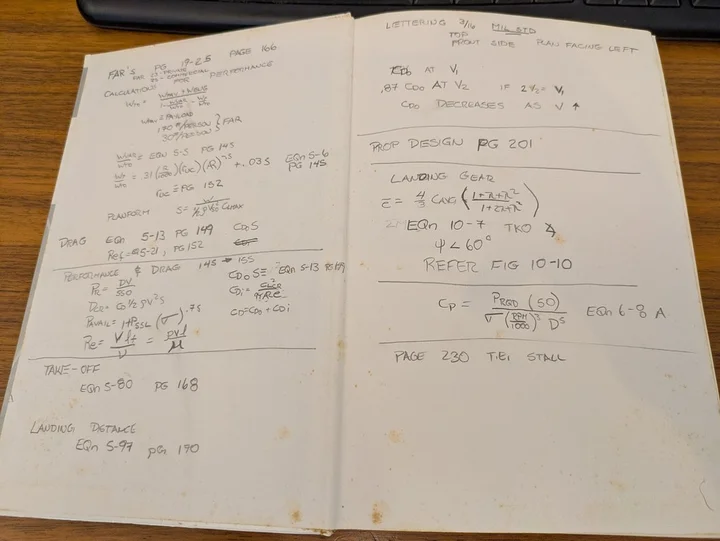 FAR'S PG 19-25 PAGE 166
FAR 23-PRIVATE
25-COMMERCIAL
CALCULATIONS FOR PERFORMANCE
W₀ =
WPAY = PAYLOAD
170 #/PERSON
30 #/PERSON } FAR
EQN 5-5 PG 145
+.035 EQN 5-6
PG 145
≡ PG 152
PLANFORM S = W / ½ρV² CLMAX
DRAG EQn 5-13 PG 149 CD₀S
Ref = 5-21, PG 152
PERFORMANCE & DRAG 145 → 155
PR = DV / 550 CD₀S ≡ EQn 5-13 PG 149
DER = CD ½ρV²S CDi =
PAVAIL = SSL (σ)^.75 CD = CD₀ + CDi
Re = Vl / ν = ρVl / μ
TAKE-OFF
EQn 5-80 PG 168
LANDING DISTANCE
EQn 5-97 PG 170
LETTERING 3/16 MIL STD
TOP
FRONT SIDE PLAN FACING LEFT
CD₀ AT V₁
.87 CD₀ AT V2 IF 2V₁ = V₂
CD₀ DECREASES AS V ↑
PROP DESIGN PG 201
LANDING GEAR
c̄ = 4/3 CAVG (1+λ+λ² / 1+2λ+λ²)
EQn 10-7 TKO
Ψ < 60°
REFER FIG 10-10
CP = PRQD (50) / σ (RPM/1000)³ D⁵ EQn 6-8 A
PAGE 230 T.E. STALL